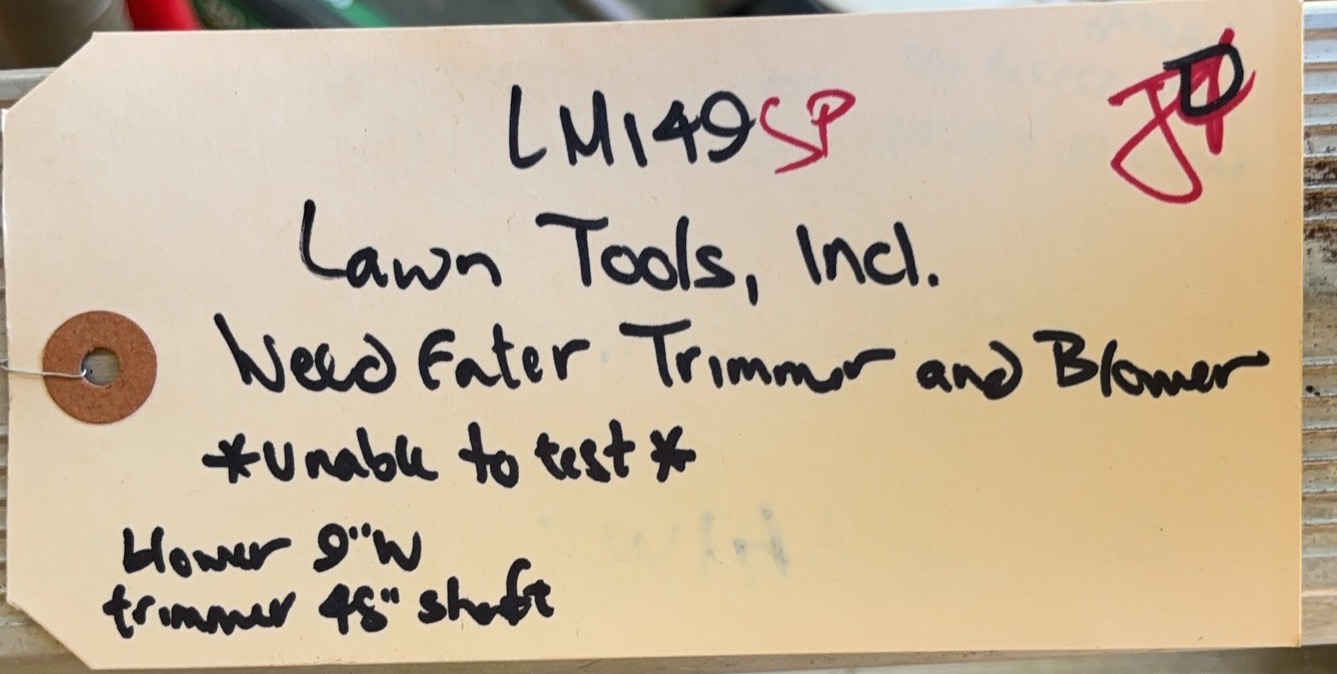 LM149SP
Lawn Tools, Incl.
Weed Eater Trimmer and Blower
*Unable to test*
blower 9"W
trimmer 48" shaft